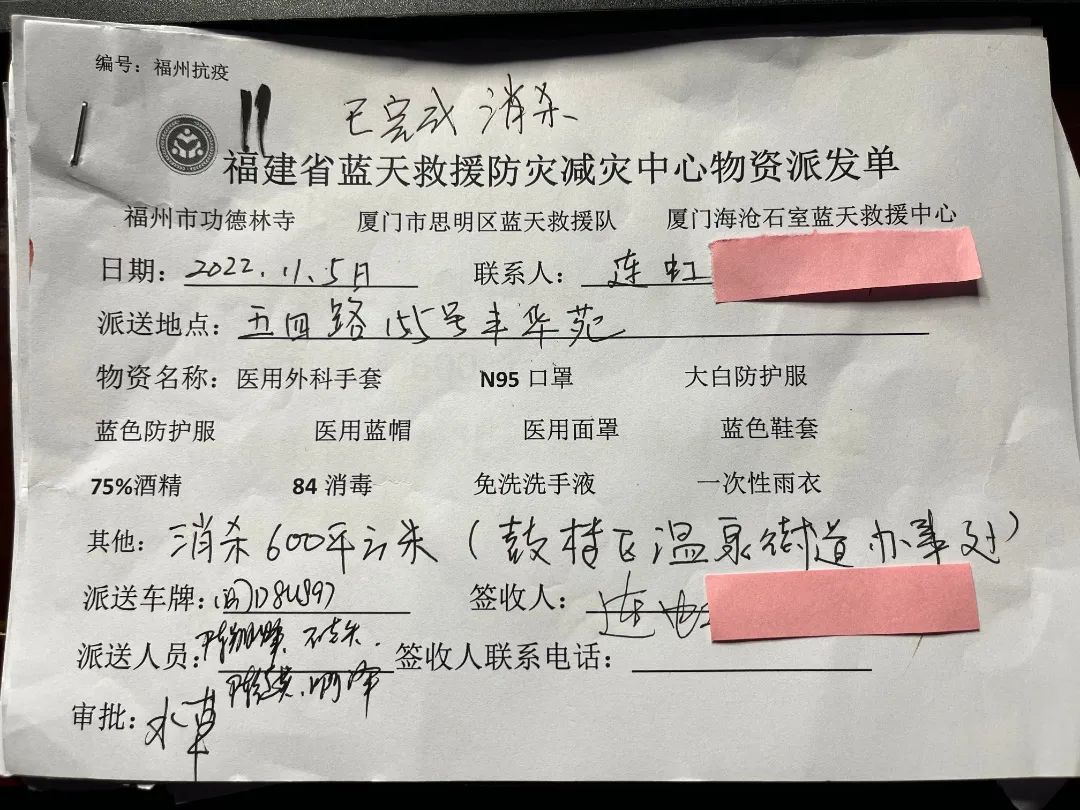 编号：福州抗疫
11 已完成消杀
福建省蓝天救援防灾减灾中心物资派发单
福州市功德林寺 厦门市思明区蓝天救援队 厦门海沧石室蓝天救援中心
日期：2022.11.5日 联系人：连虹
派送地点：五四路155号丰华苑
物资名称：医用外科手套 N95口罩 大白防护服
蓝色防护服 医用蓝帽 医用面罩 蓝色鞋套
75%酒精 84消毒 免洗洗手液 一次性雨衣
其他：消杀600平方米（鼓楼区温泉街道办事处）
派送车牌： 签收人：连虹
派送人员： 签收人联系电话：
审批：